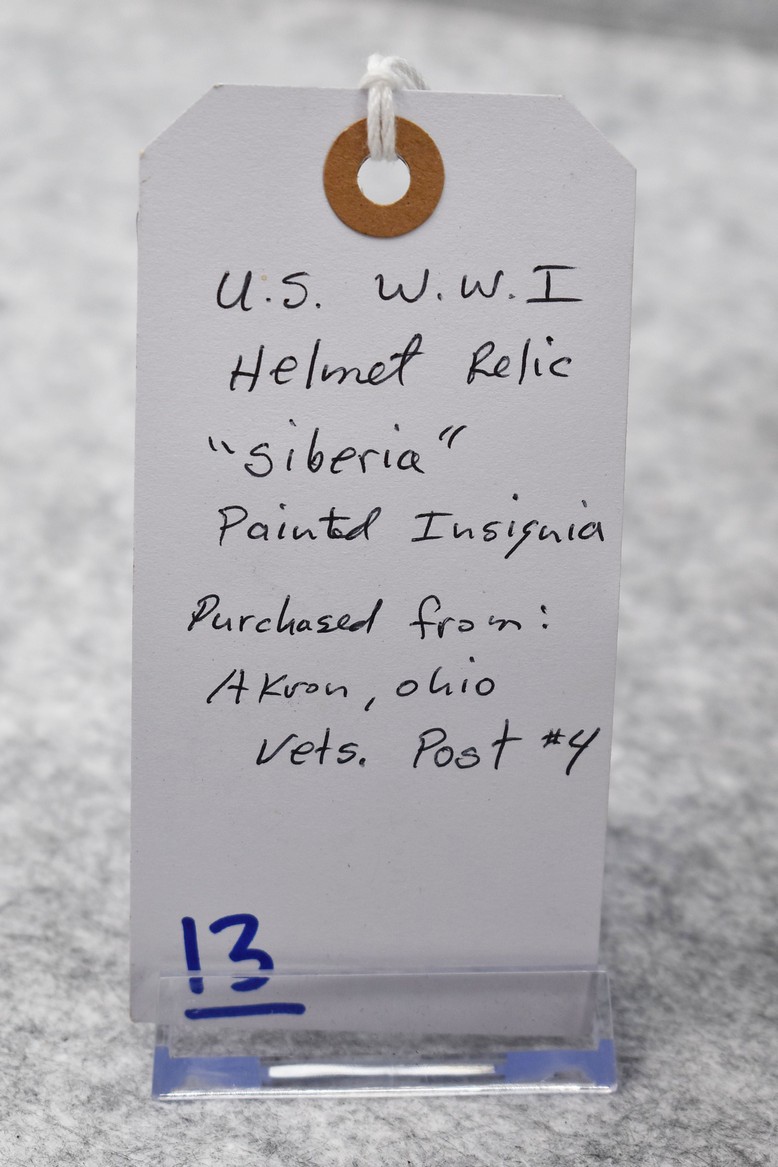 U.S. W.W.I
Helmet Relic
"Siberia"
Painted Insignia
Purchased from:
Akron, Ohio
Vets. Post #4
13